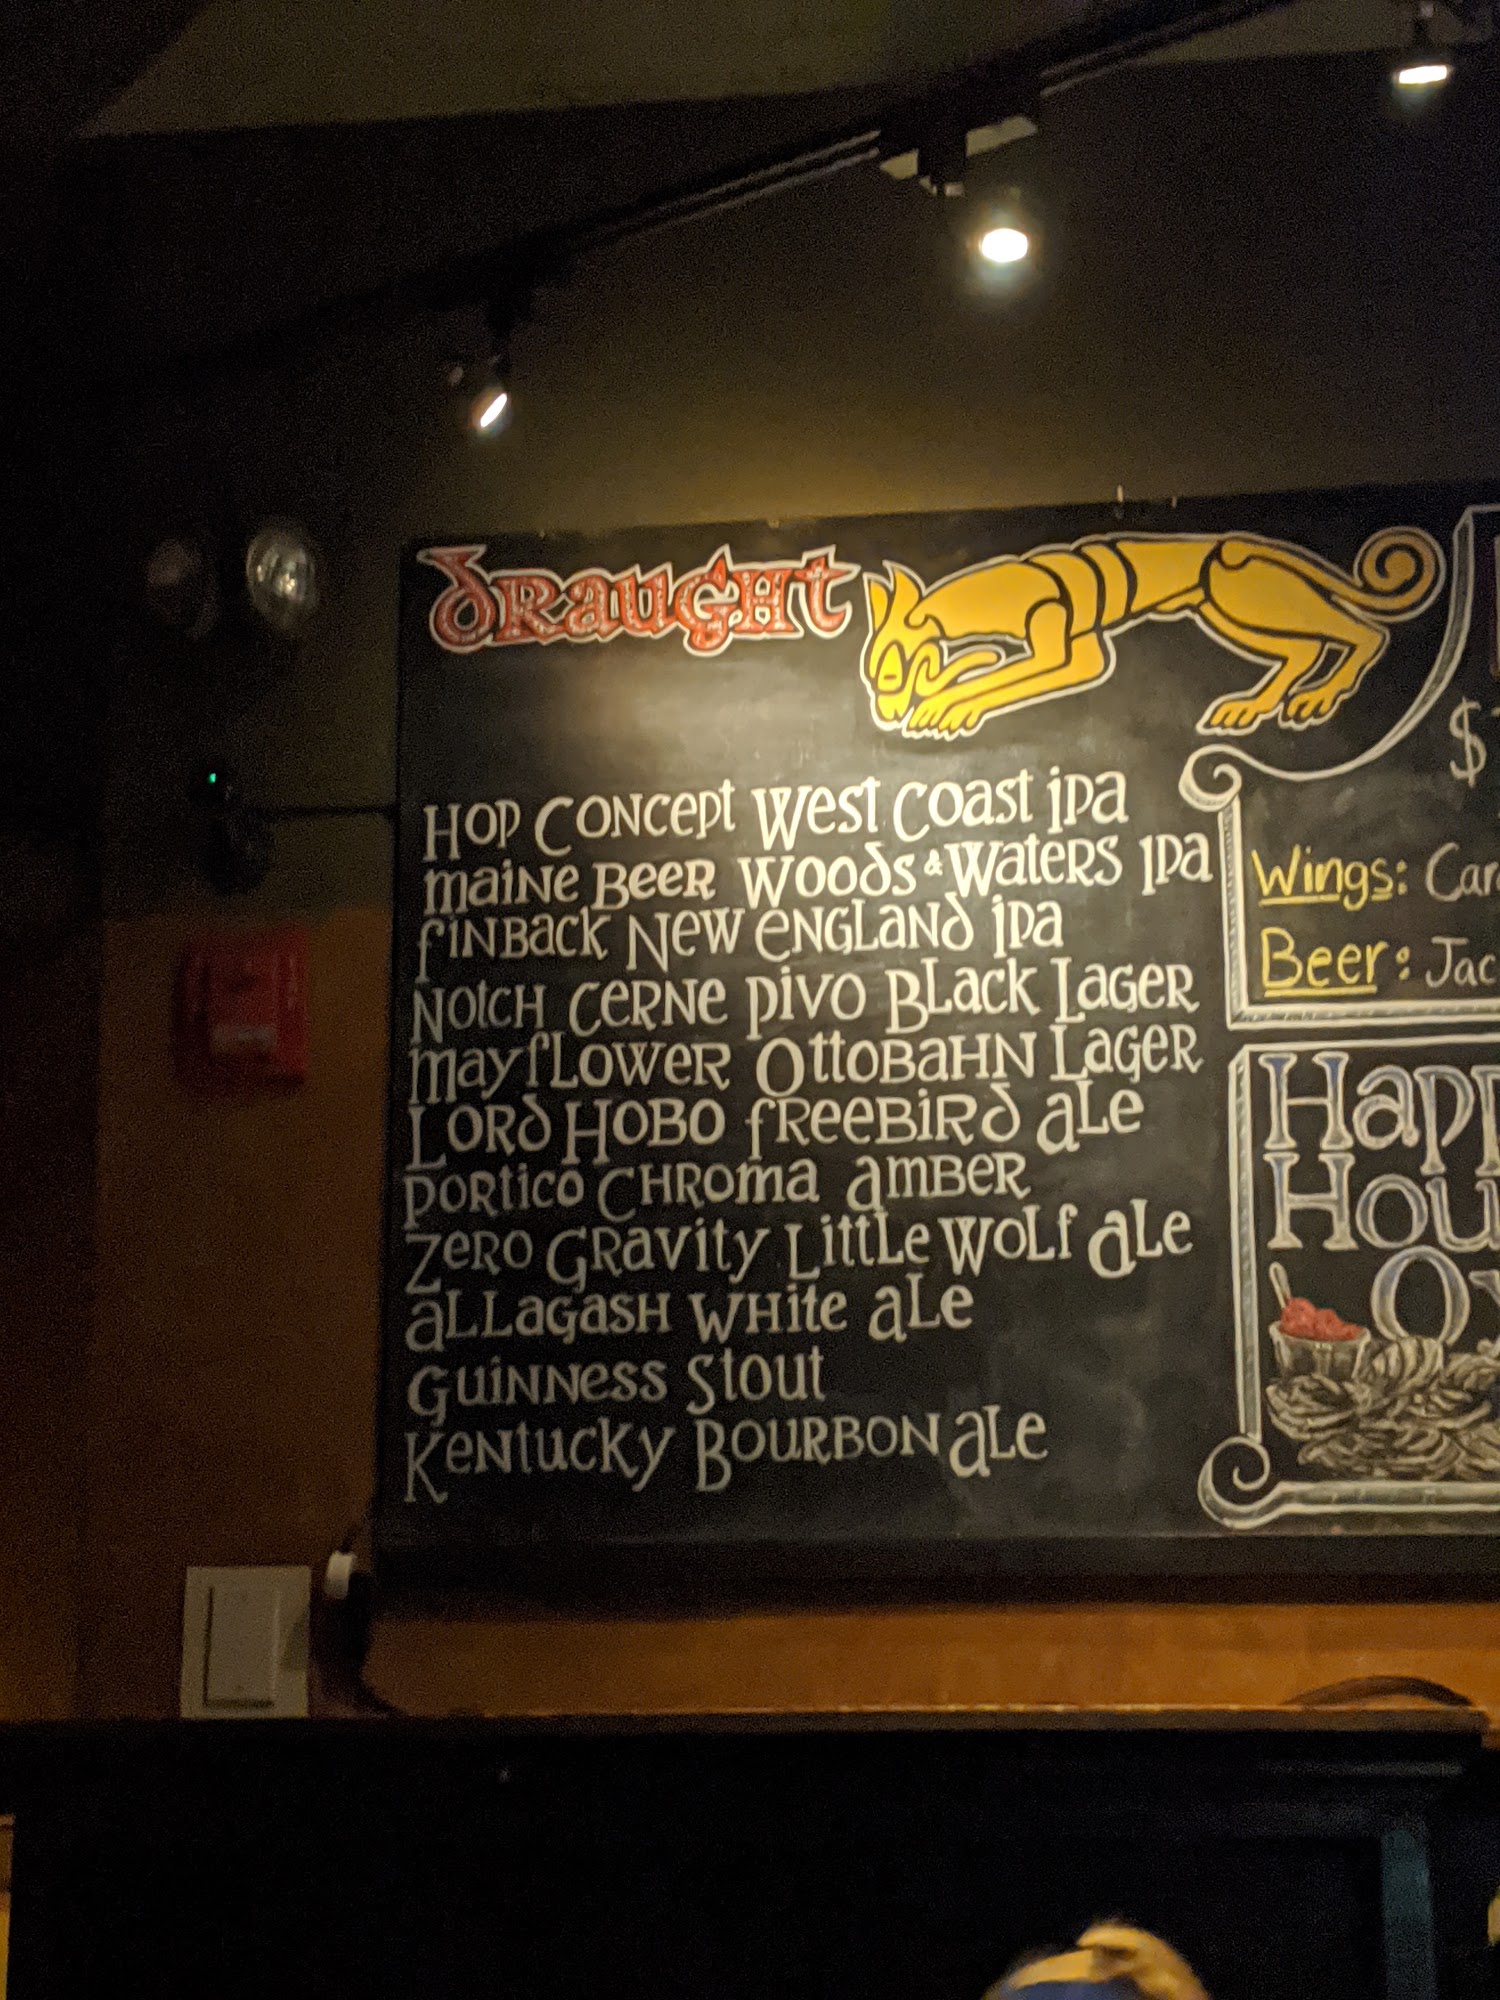 draught
Hop Concept West Coast ipa
maine Beer Woods & Waters ipa
finback New england ipa
Notch Cerne pivo Black Lager
mayflower Ottobahn Lager
Lord Hobo freebird ale
portico Chroma amber
Zero Gravity Little Wolf ale
allagash White ale
Guinness Stout
Kentucky Bourbon ale
$
Wings: Car
Beer: Jac
Happ
Hou
Oy